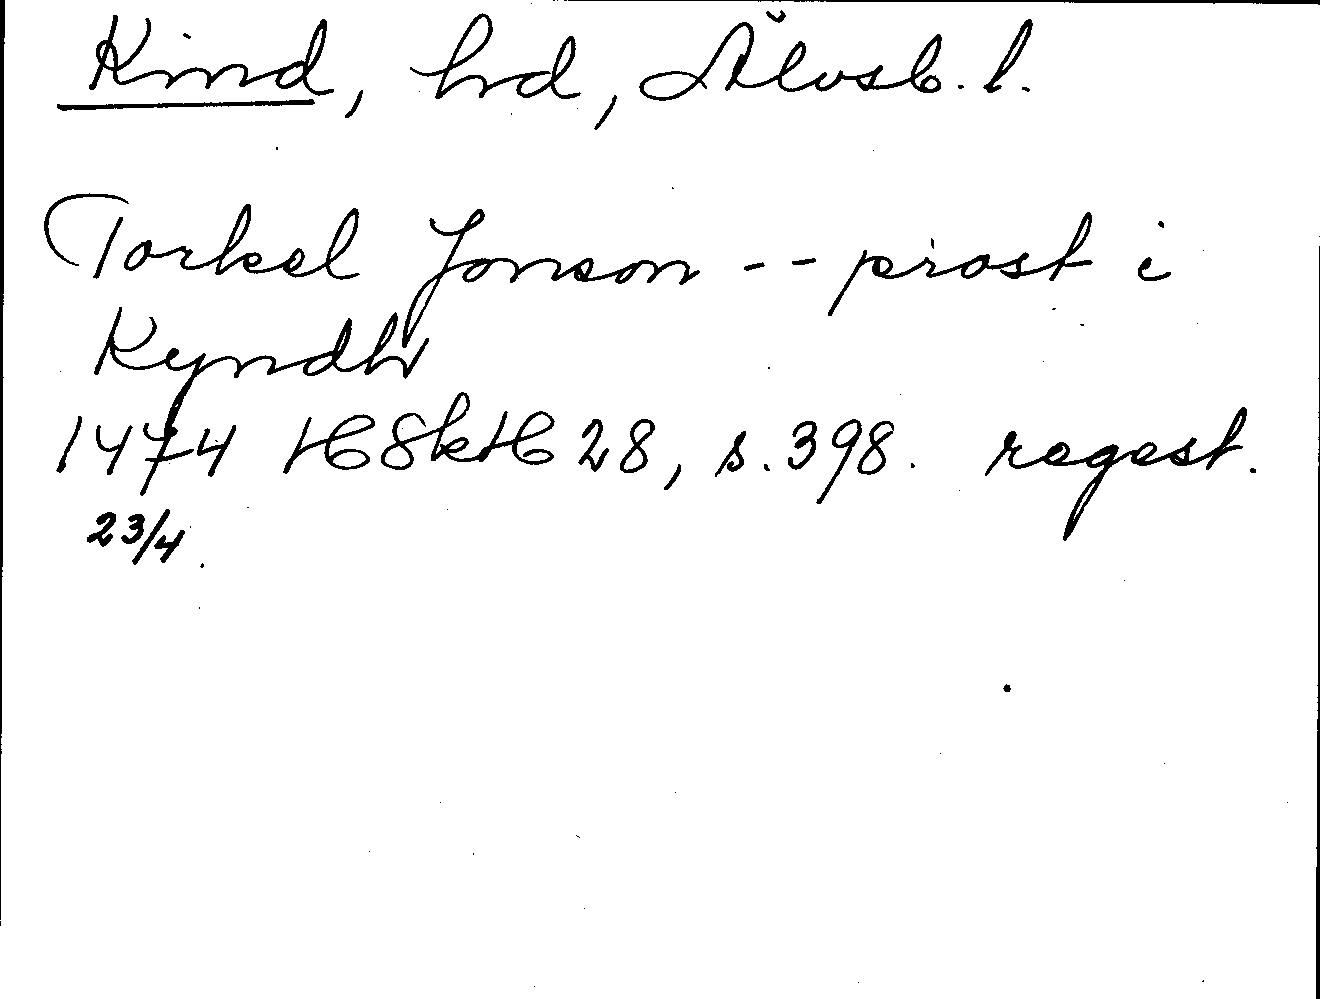 Kind, hd, Älvsb. l.
Torkel Jonson -- prost i
Kyndh
1474 HSkH 28, s. 398. regest.
23/4.